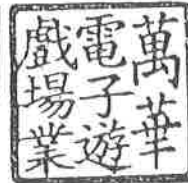 萬華
電子遊
戲場業